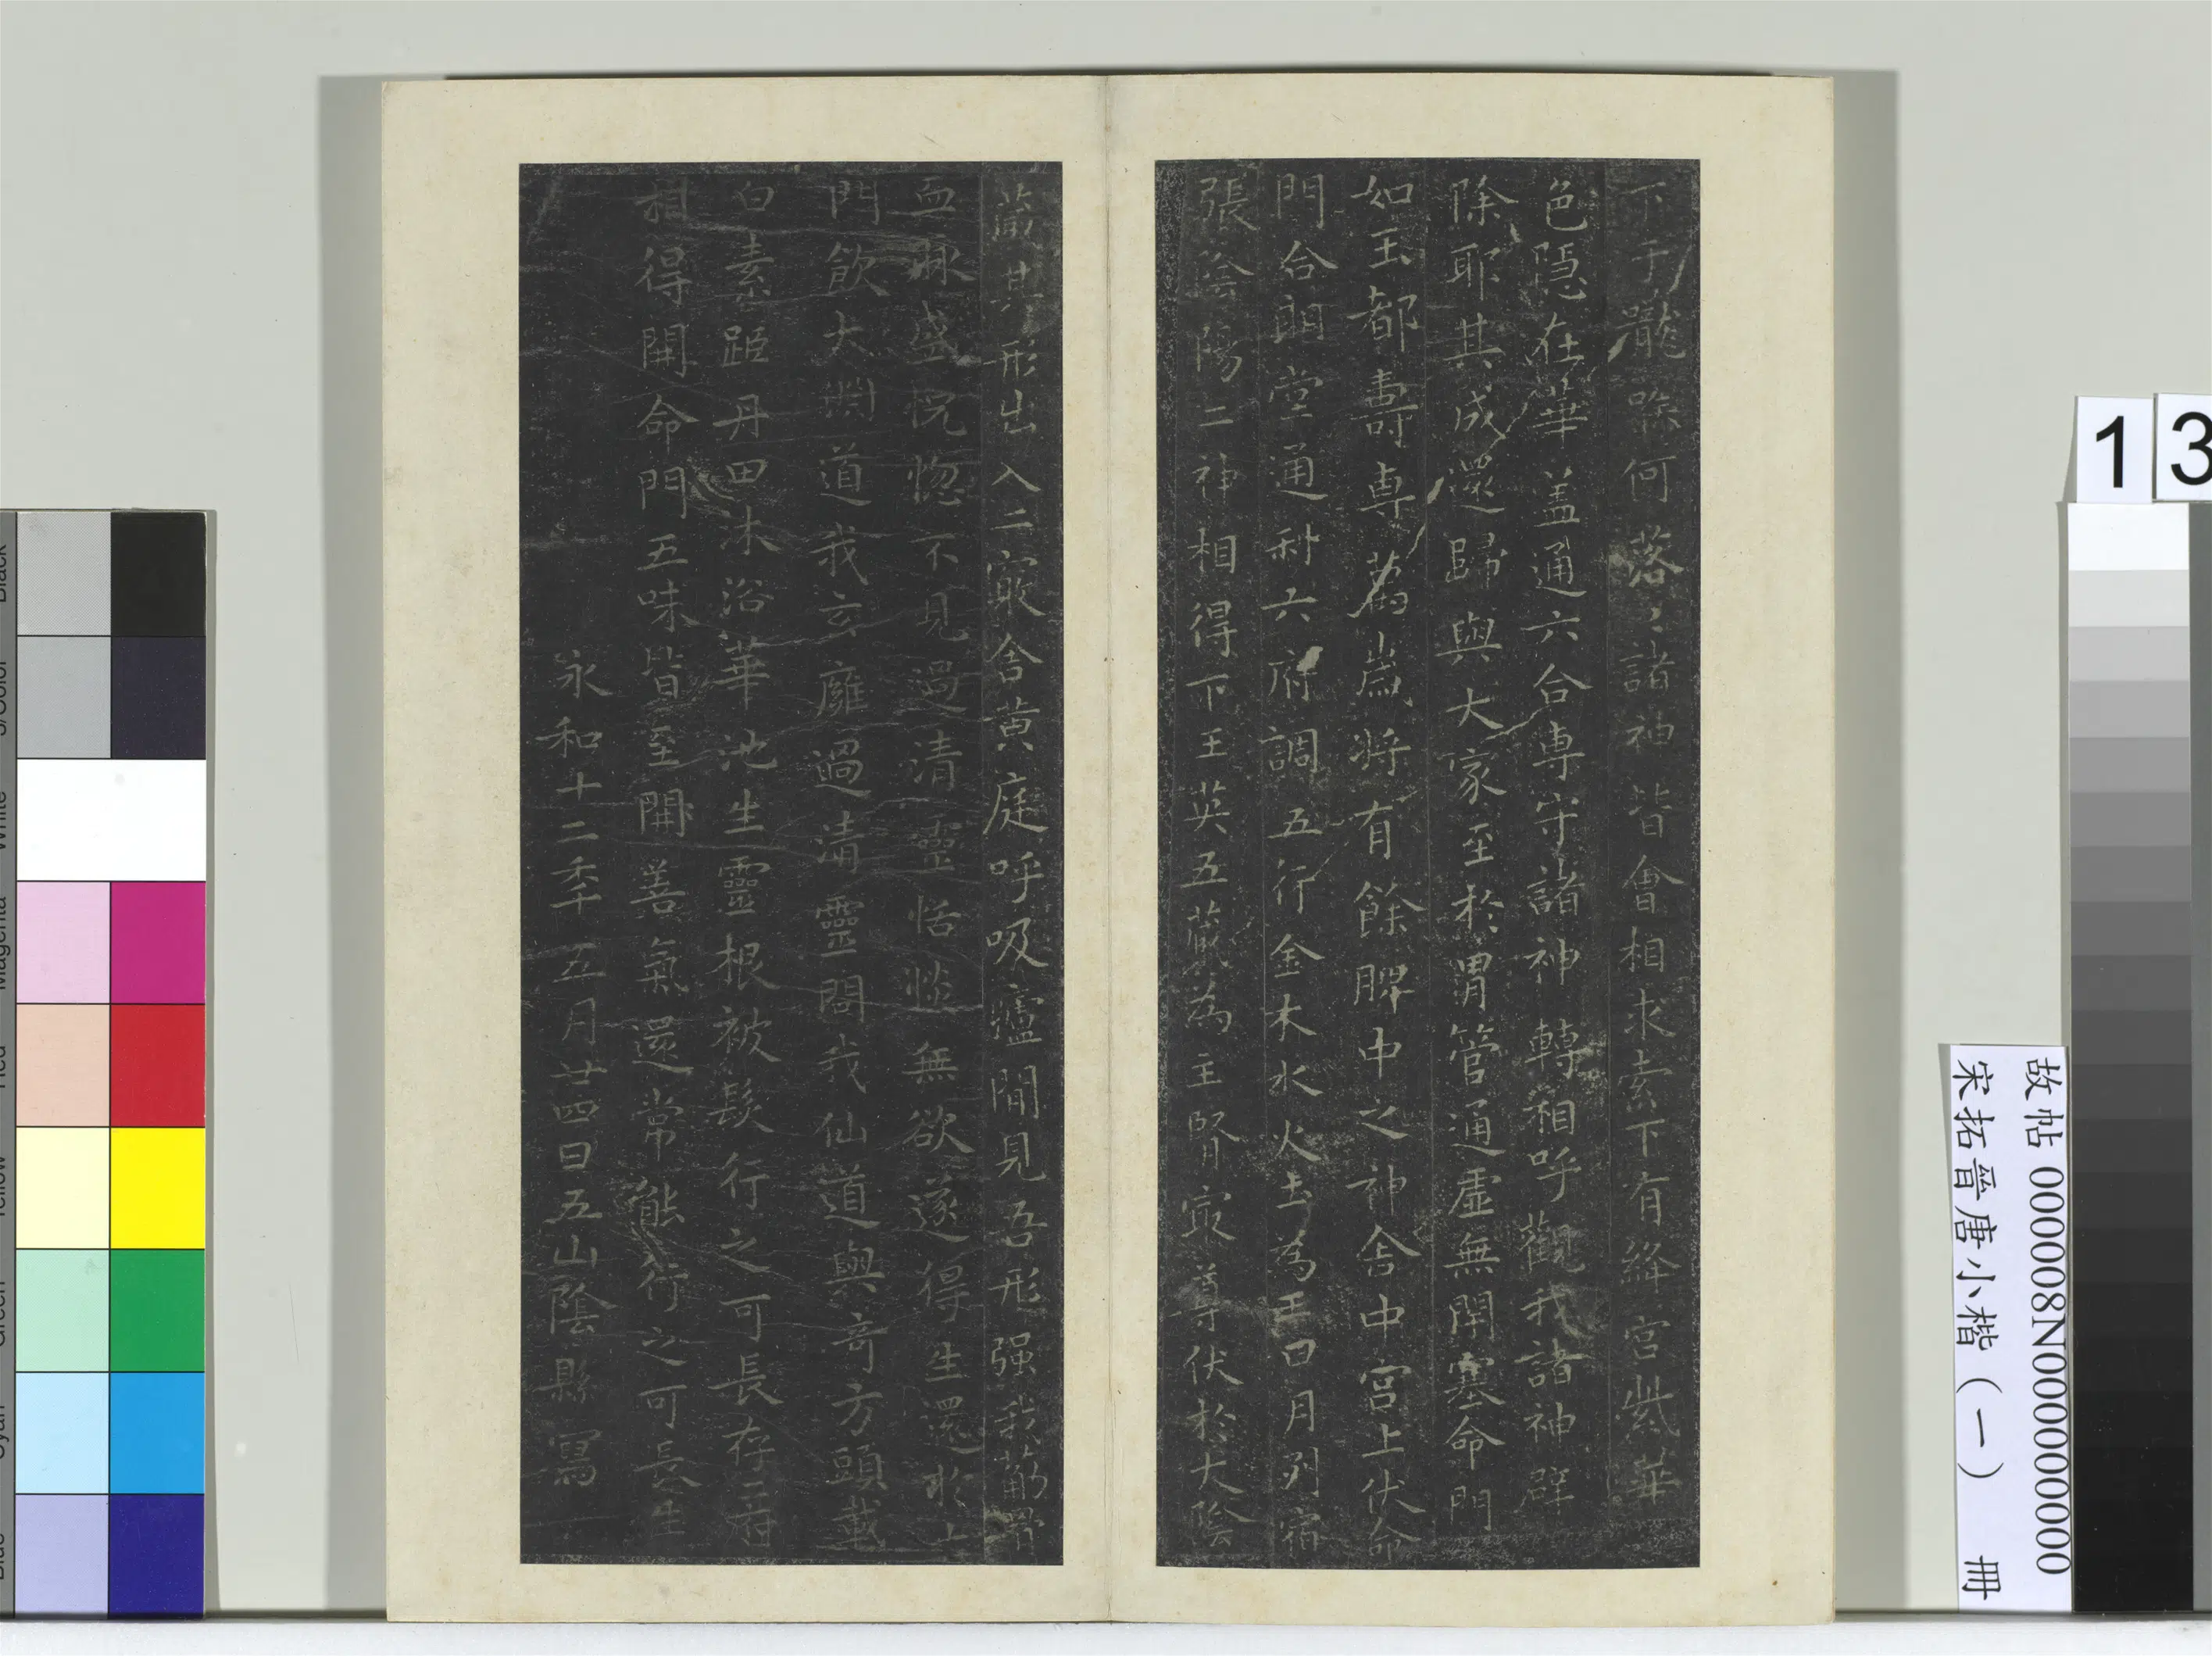 下于嚨喉何落〻諸神皆會相求索下有絳宮紫華
色隱在華盖通六合專守諸神轉相呼觀我諸神辟
除耶其成還歸與大家至於胃管通虛無閉塞命門
如玉都壽專萬歲將有餘脾中之神舍中宮上伏命
門合明堂通利六府調五行金木水火土為王日月列宿
張陰陽二神相得下玉英五藏為主腎冣尊伏於大陰
藏其形出入二竅舍黃庭呼吸廬間見吾形强我筋骨
血脉盛恍惚不見過清靈恬惔無欲遂得生還於七
門飲大淵道我玄廱過清靈問我仙道與奇方頭載
白素距丹田沐浴華池生靈根被髮行之可長存二府
相得開命門五味皆至開善氣還常能行之可長生
永和十二年五月廿四日五山陰縣寫
13
故帖 000008N000000000
宋拓晉唐小楷（一） 冊
Black
3/Color
White
Magenta
Red
Yellow
Green
Cyan
Blue